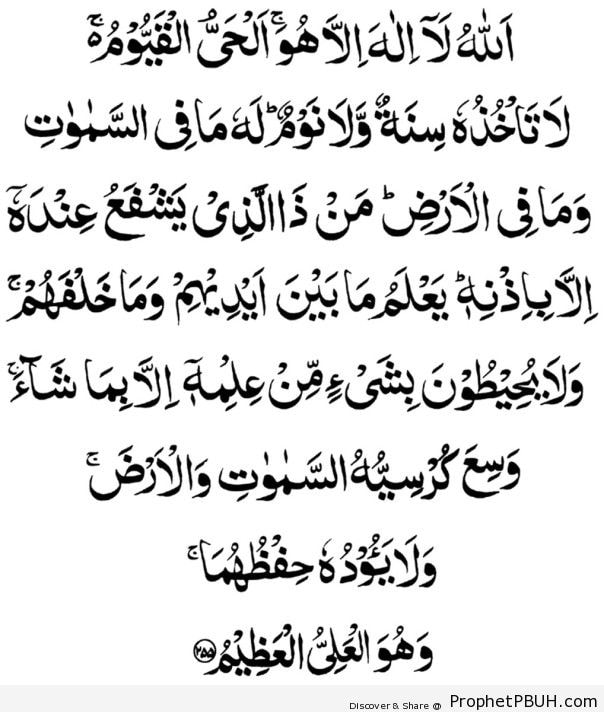 اَللّٰهُ لَآ اِلٰهَ اِلَّا هُوَۚ اَلْحَیُّ الْقَیُّوْمُ ۚ۬
لَا تَاْخُذُهٗ سِنَةٌ وَّلَا نَوْمٌ ؕ لَهٗ مَا فِی السَّمٰوٰتِ
وَمَا فِی الْاَرْضِ ؕ مَنْ ذَا الَّذِیْ یَشْفَعُ عِنْدَهٗۤ
اِلَّا بِاِذْنِهٖ ؕ یَعْلَمُ مَا بَیْنَ اَیْدِیْهِمْ وَمَا خَلْفَهُمْ ۚ
وَلَا یُحِیْطُوْنَ بِشَیْءٍ مِّنْ عِلْمِهٖۤ اِلَّا بِمَا شَآءَ ۚ
وَسِعَ كُرْسِیُّهُ السَّمٰوٰتِ وَالْاَرْضَ ۚ
وَلَا یَـُٔوْدُهٗ حِفْظُهُمَا ۚ
وَهُوَ الْعَلِیُّ الْعَظِیْمُ ﴿۲۵۵﴾
Discover & Share @ ProphetPBUH.com